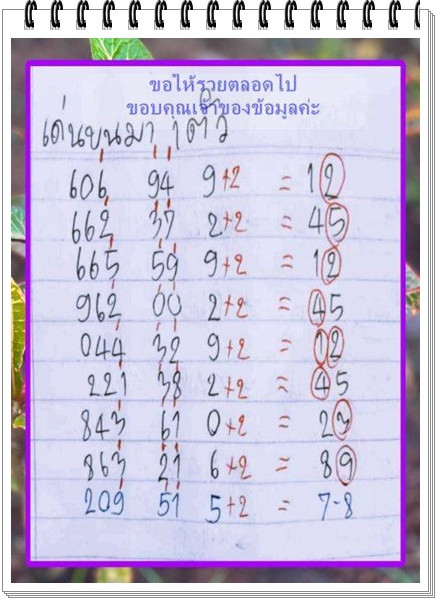 ขอให้รวยตลอดไป
ขอบคุณเจ้าของข้อมูลค่ะ
เด่นบนมา 1 ตัว
606 94 9+2 = 12
662 37 2+2 = 45
665 59 9+2 = 12
962 00 2+2 = 45
044 32 9+2 = 12
221 38 2+2 = 45
843 61 0+2 = 23
863 21 6+2 = 89
209 51 5+2 = 7-8